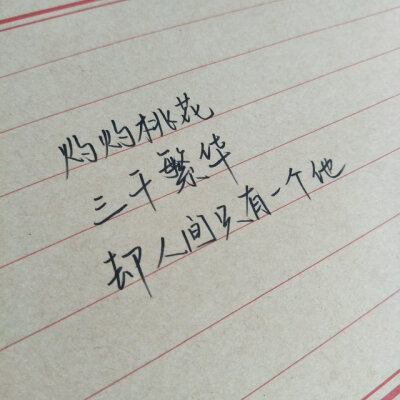 灼灼桃花
三千繁华
却人间只有一个他